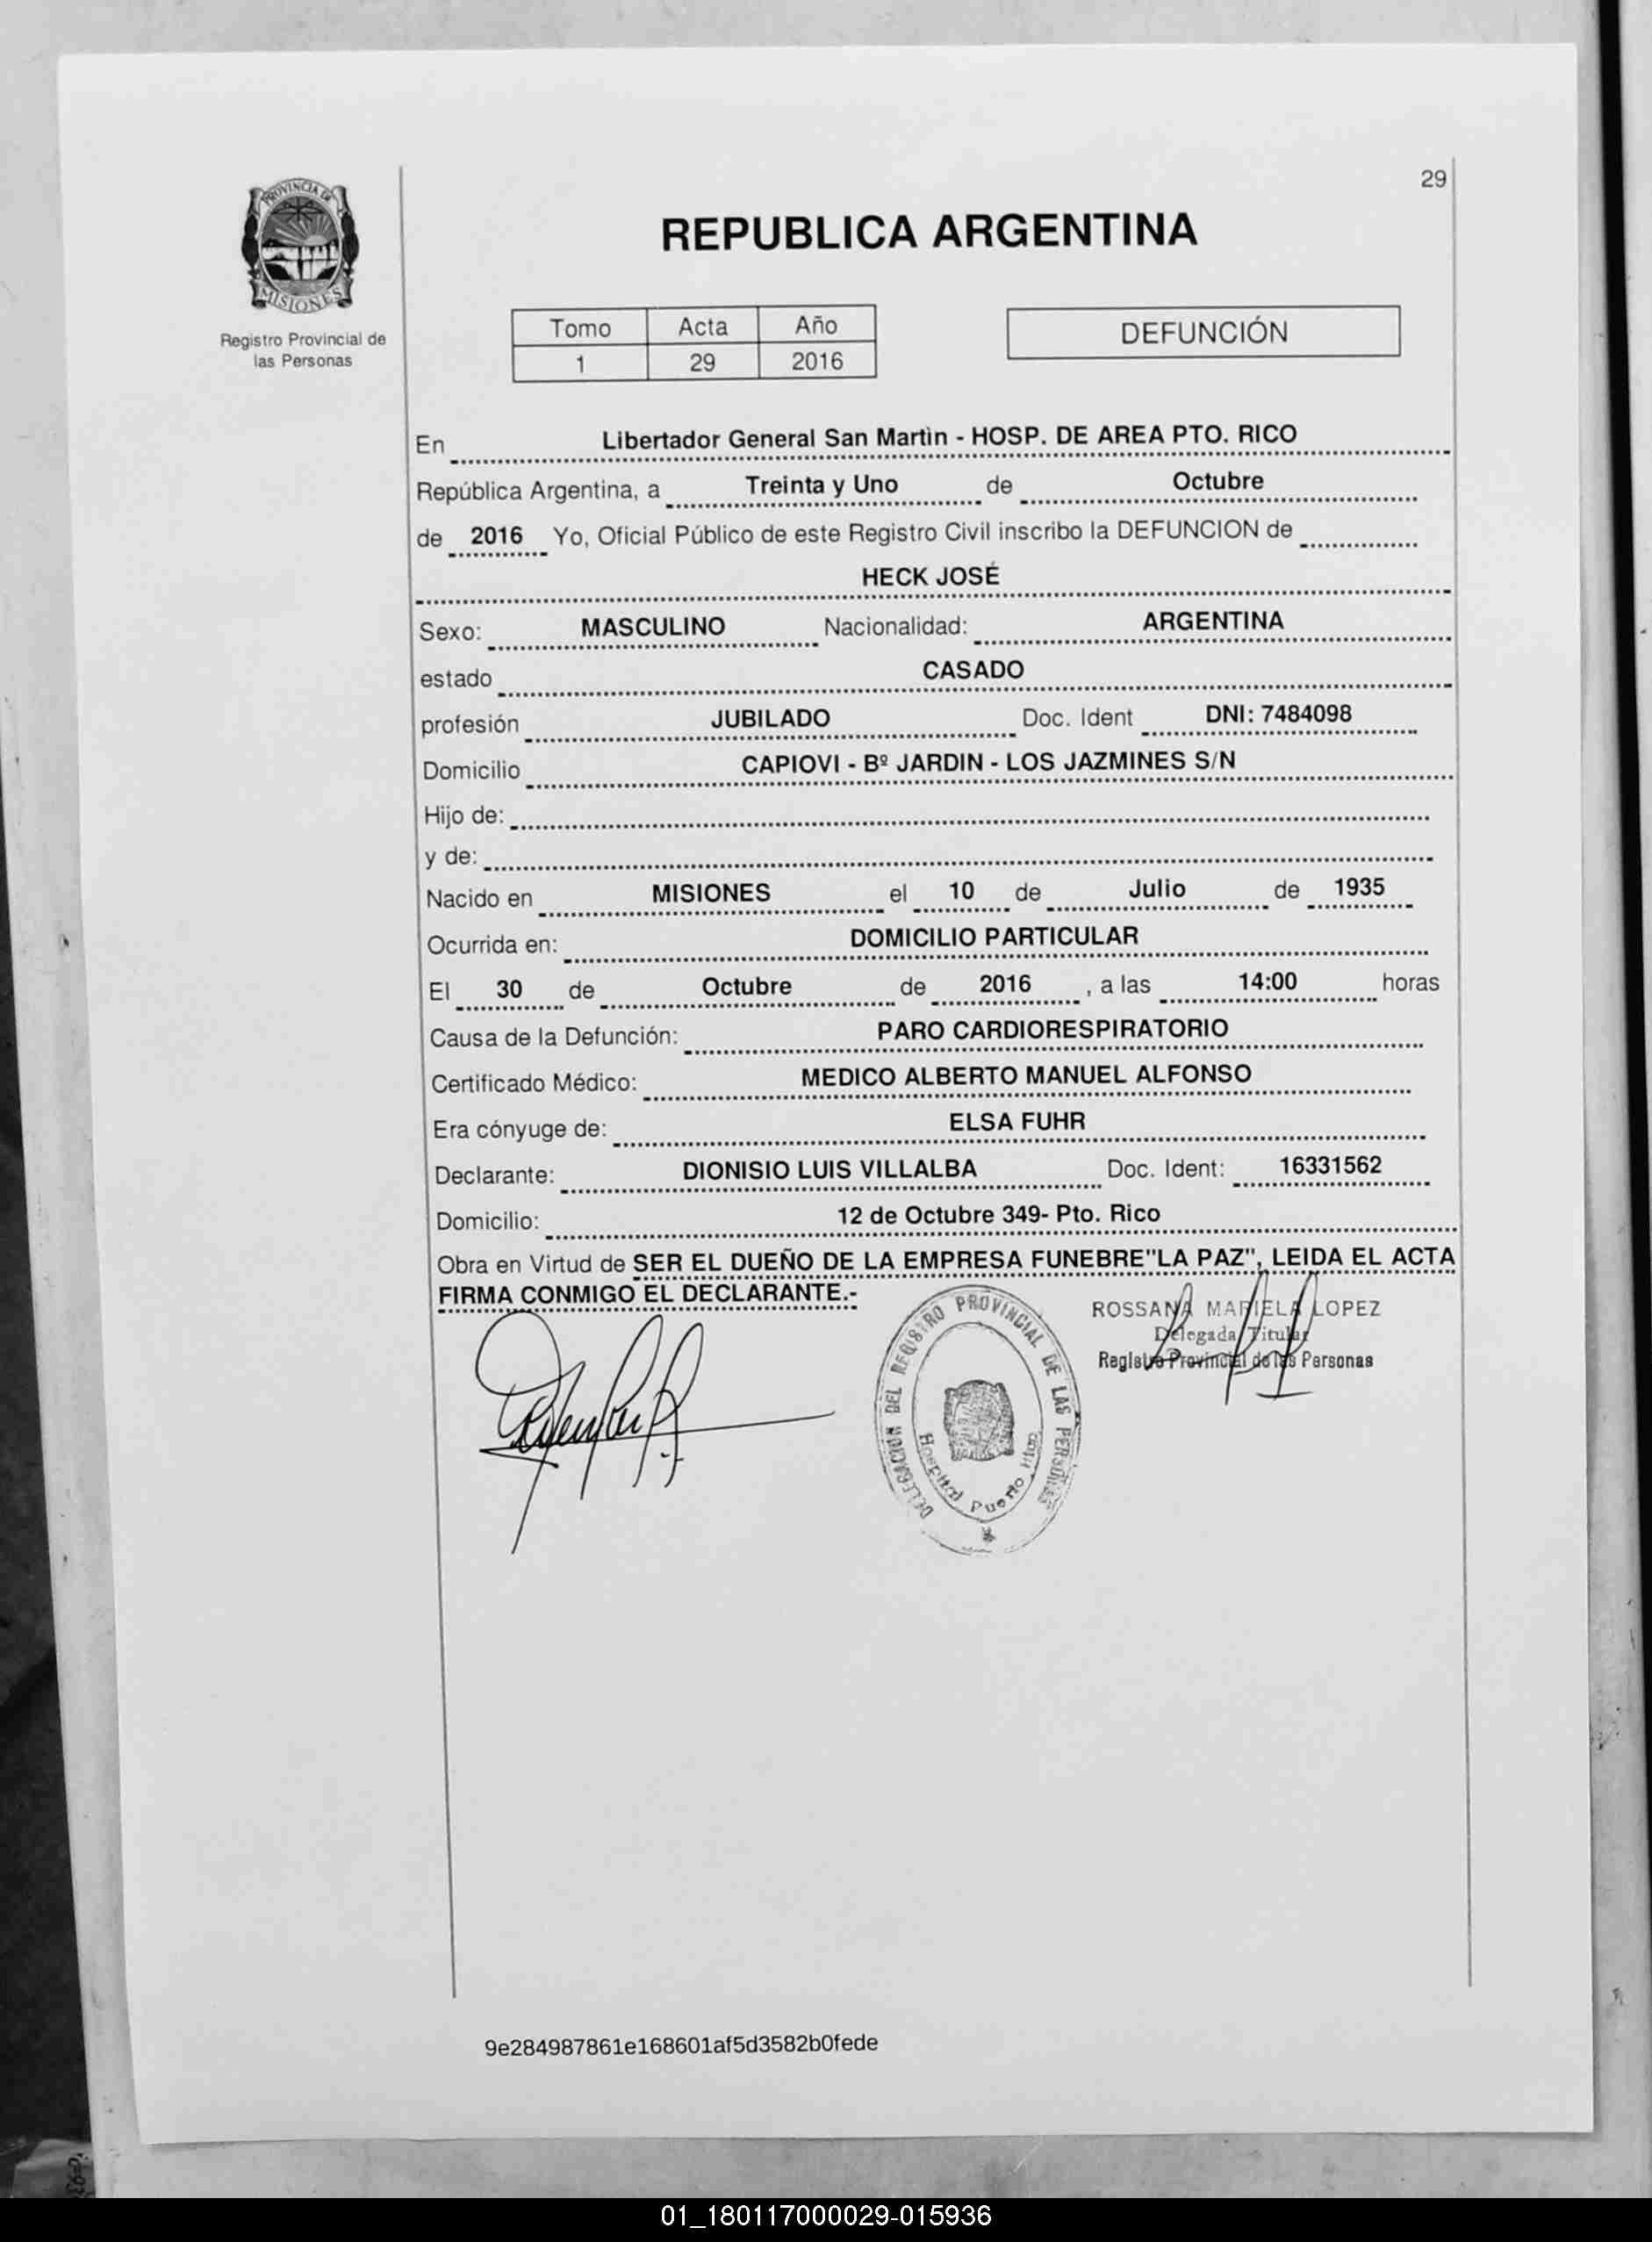 29
PROVINCIA DE
MISIONES
Registro Provincial de
las Personas
REPUBLICA ARGENTINA
Tomo Acta Año
1 29 2016
DEFUNCIÓN
En Libertador General San Martìn - HOSP. DE AREA PTO. RICO
República Argentina, a Treinta y Uno de Octubre
de 2016 Yo, Oficial Público de este Registro Civil inscribo la DEFUNCION de
HECK JOSÉ
Sexo: MASCULINO Nacionalidad: ARGENTINA
estado CASADO
profesión JUBILADO Doc. Ident DNI: 7484098
Domicilio CAPIOVI - Bº JARDIN - LOS JAZMINES S/N
Hijo de:
y de:
Nacido en MISIONES el 10 de Julio de 1935
Ocurrida en: DOMICILIO PARTICULAR
El 30 de Octubre de 2016 , a las 14:00 horas
Causa de la Defunción: PARO CARDIORESPIRATORIO
Certificado Médico: MEDICO ALBERTO MANUEL ALFONSO
Era cónyuge de: ELSA FUHR
Declarante: DIONISIO LUIS VILLALBA Doc. Ident: 16331562
Domicilio: 12 de Octubre 349- Pto. Rico
Obra en Virtud de SER EL DUEÑO DE LA EMPRESA FUNEBRE"LA PAZ", LEIDA EL ACTA
FIRMA CONMIGO EL DECLARANTE.-
DELEGACION DEL REGISTRO PROVINCIAL DE LAS PERSONAS
Hospital Puerto Rico
ROSSANA MARIELA LOPEZ
Delegada Titular
Registro Provincial de las Personas
9e284987861e168601af5d3582b0fede
01_180117000029-015936